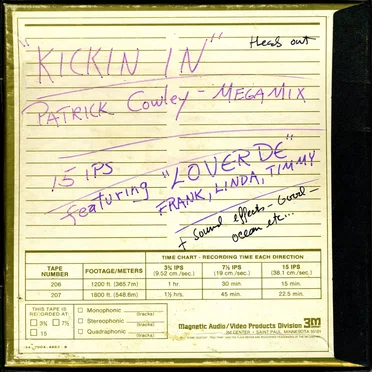 Heads out
"KICKIN IN"
PATRICK Cowley - MEGAMIX
15 IPS
featuring "LOVERDE"
FRANK, LINDA, TIMMY
+ Sound effects - Good -
ocean etc...
TIME CHART - RECORDING TIME EACH DIRECTION
TAPE NUMBER FOOTAGE/METERS 3¾ IPS (9.52 cm./sec.) 7½ IPS (19 cm./sec.) 15 IPS (38.1 cm./sec.)
206 1200 ft. (365.7m) 1 hr. 30 min 15 min.
207 1800 ft. (548.6m) 1½ hrs. 45 min. 22.5 min.
THIS TAPE IS RECORDED AT:
3¾ 7½
15
Monophonic (tracks)
Stereophonic (tracks)
Quadraphonic (tracks)
Magnetic Audio/Video Products Division 3M
3M CENTER • SAINT PAUL, MINNESOTA 55101